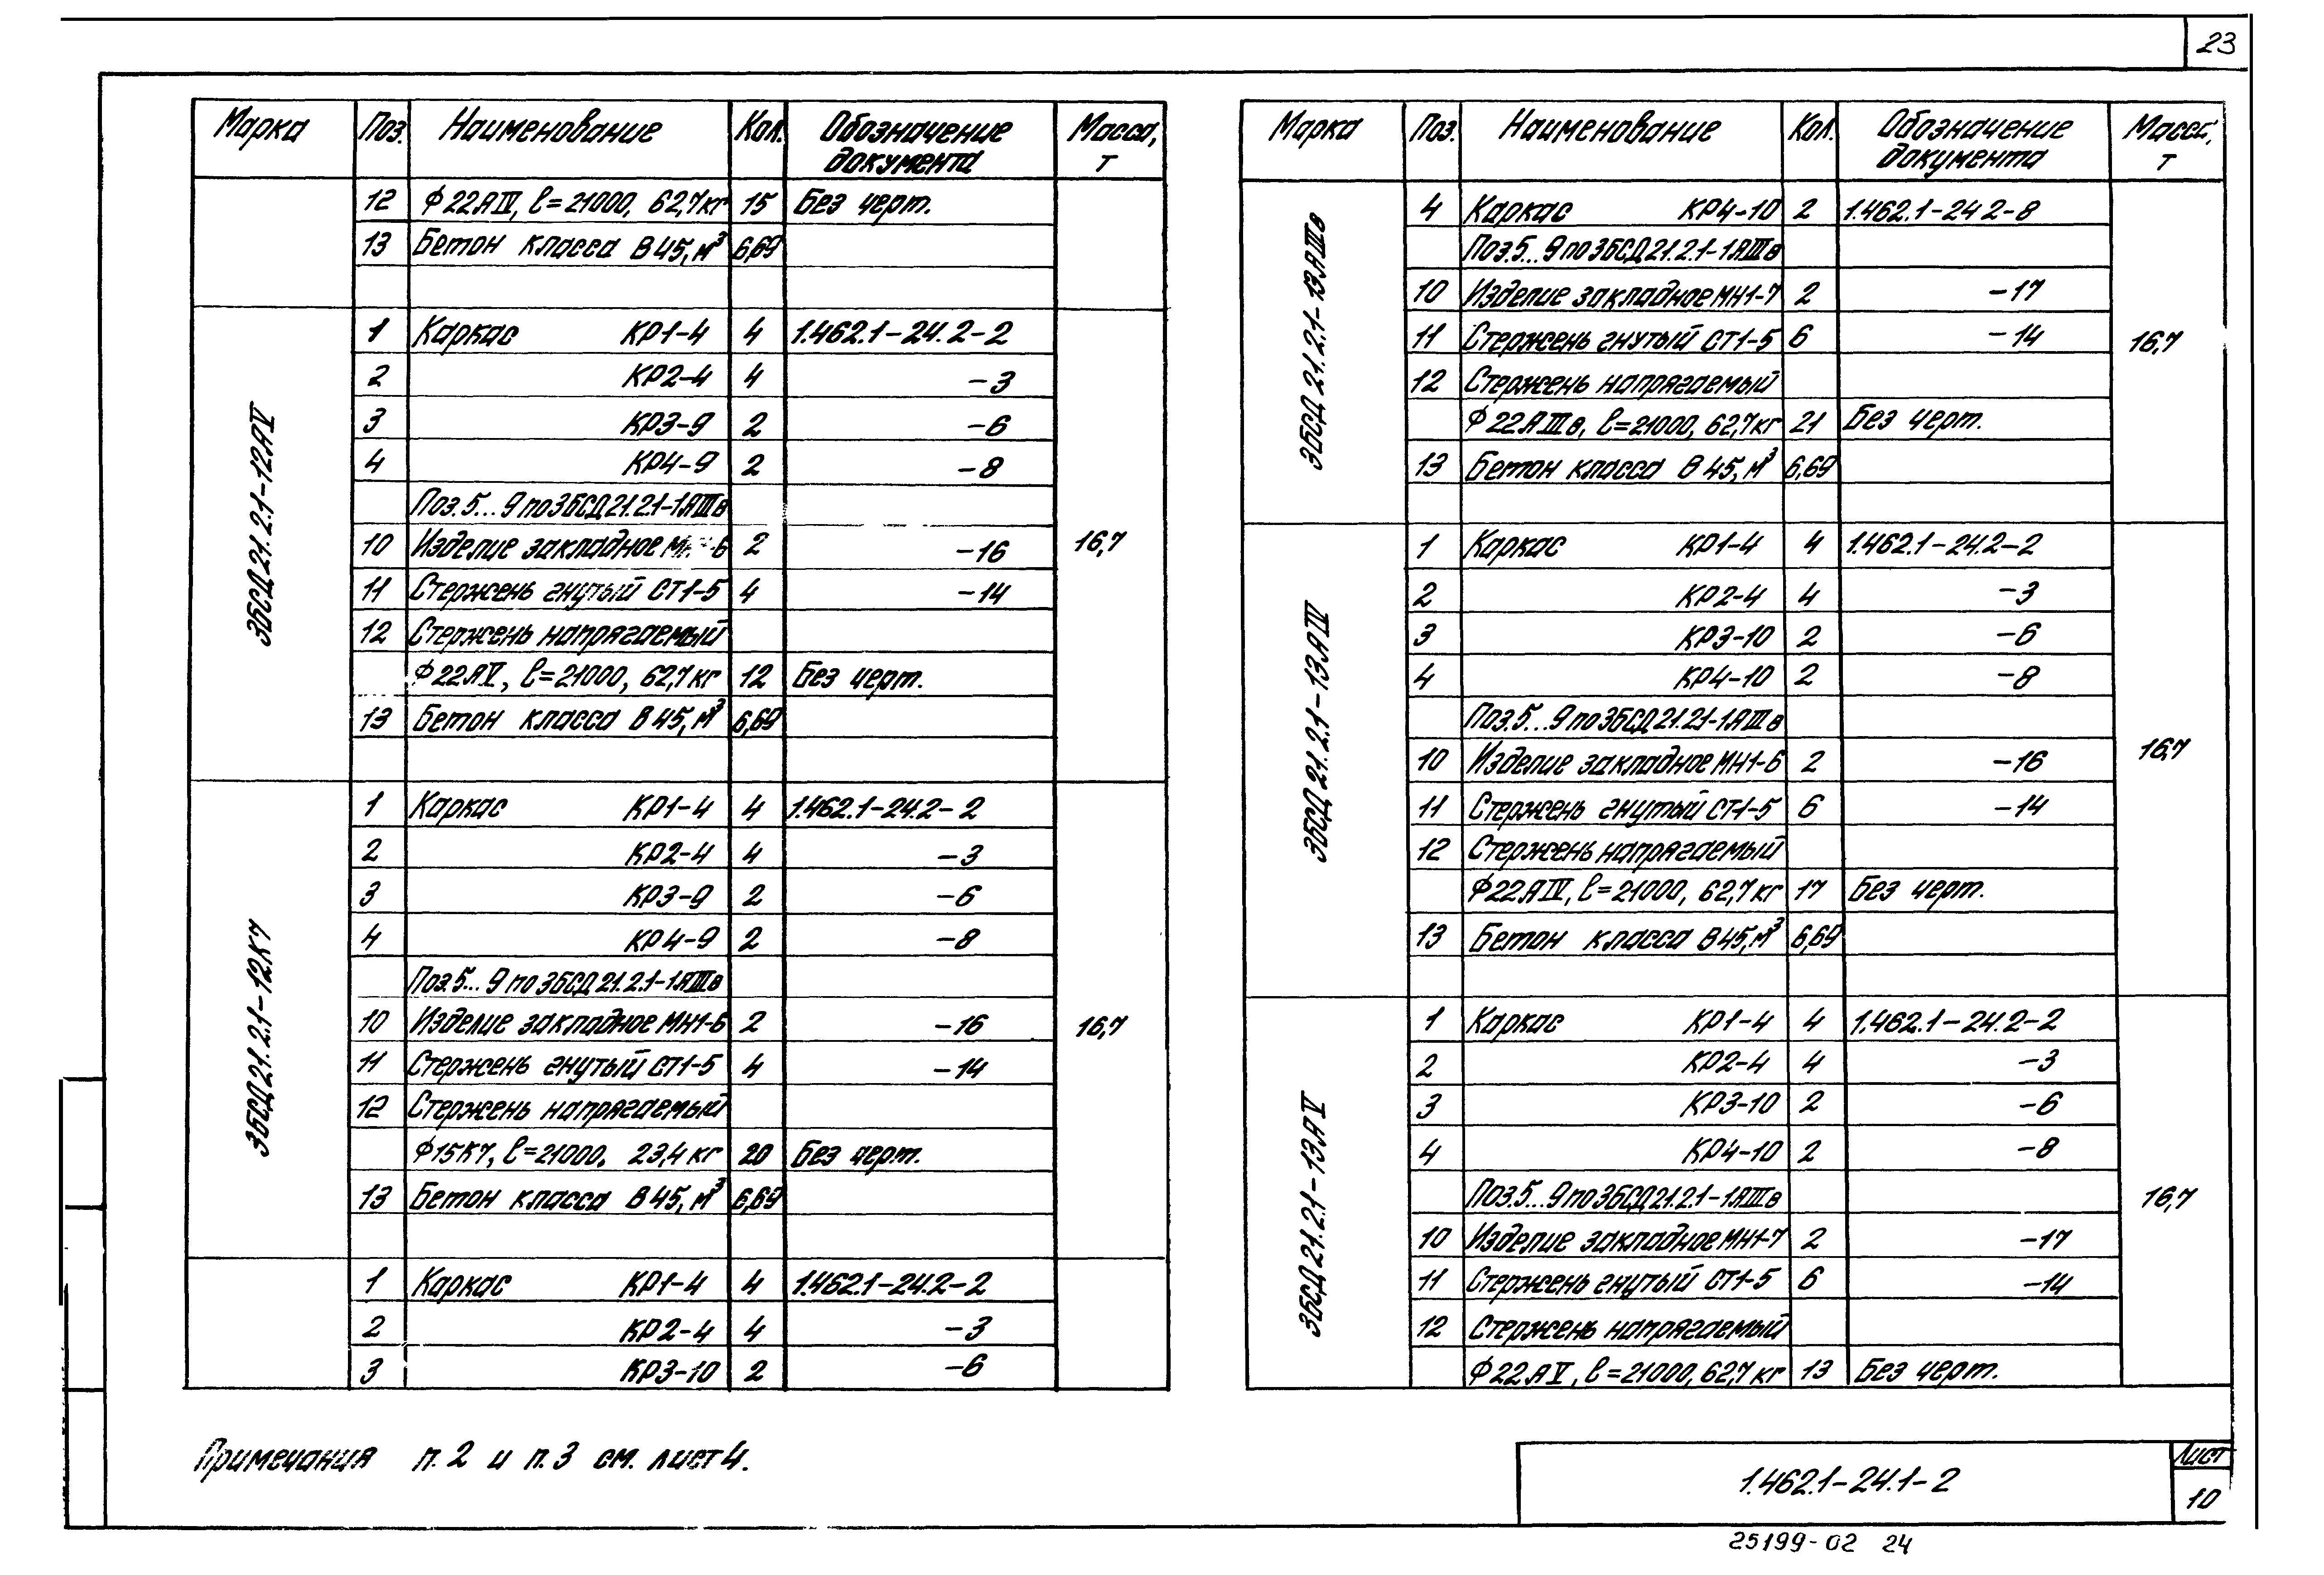 23
Марка Поз. Наименование Кол. Обозначение документа Масса, т
12 Ф22АIV, ℓ=21000, 62,7кг 15 Без черт.
13 Бетон класса В45, м³ 6,69
3БСД21.2.1-12АV
1 Каркас КР1-4 4 1.462.1-24.2-2
2 КР2-4 4 -3
3 КР3-9 2 -6
4 КР4-9 2 -8
Поз.5...9 по3БСД21.2.1-1АIIIв
10 Изделие закладное 2 -16
11 Стержень гнутый СТ1-5 4 -14
12 Стержень напрягаемый
Ф22АV, ℓ=21000, 62,7кг 12 Без черт.
13 Бетон класса В45, м³ 6,69
16,7
3БСД21.2.1-12К7
1 Каркас КР1-4 4 1.462.1-24.2-2
2 КР2-4 4 -3
3 КР3-9 2 -6
4 КР4-9 2 -8
Поз.5...9 по 3БСД21.2.1-1АIIIв
10 Изделие закладное МН1-6 2 -16
11 Стержень гнутый СТ1-5 4 -14
12 Стержень напрягаемый
Ф15К7, ℓ=21000, 23,4кг 20 Без черт.
13 Бетон класса В45, м³ 6,69
16,7
1 Каркас КР1-4 4 1.462.1-24.2-2
2 КР2-4 4 -3
3 КР3-10 2 -6
Марка Поз. Наименование Кол. Обозначение документа Масса, т
3БСД21.2.1-13АIIIв
4 Каркас КР4-10 2 1.462.1-24 2-8
Поз.5...9 по3БСД21.2.1-1АIIIв
10 Изделие закладное МН1-7 2 -17
11 Стержень гнутый СТ1-5 6 -14
12 Стержень напрягаемый
Ф22АIIIв, ℓ=21000, 62,7кг 21 Без черт.
13 Бетон класса В45, м³ 6,69
16,7
3БСД21.2.1-13АIV
1 Каркас КР1-4 4 1.462.1-24.2-2
2 КР2-4 4 -3
3 КР3-10 2 -6
4 КР4-10 2 -8
Поз.5...9 по3БСД21.21-1АIIIв
10 Изделие закладное МН1-6 2 -16
11 Стержень гнутый СТ1-5 6 -14
12 Стержень напрягаемый
Ф22АIV, ℓ=21000, 62,7кг 17 Без черт.
13 Бетон класса В45, м³ 6,69
16,7
3БСД21.2.1-13АV
1 Каркас КР1-4 4 1.462.1-24.2-2
2 КР2-4 4 -3
3 КР3-10 2 -6
4 КР4-10 2 -8
Поз.5...9 по3БСД21.2.1-1АIIIв
10 Изделие закладное МН1-7 2 -17
11 Стержень гнутый СТ1-5 6 -14
12 Стержень напрягаемый
Ф22АV, ℓ=21000, 62,7кг 13 Без черт.
16,7
Примечания п.2 и п.3 см. лист 4.
1.462.1-24.1-2
Лист
10
25199-02 24